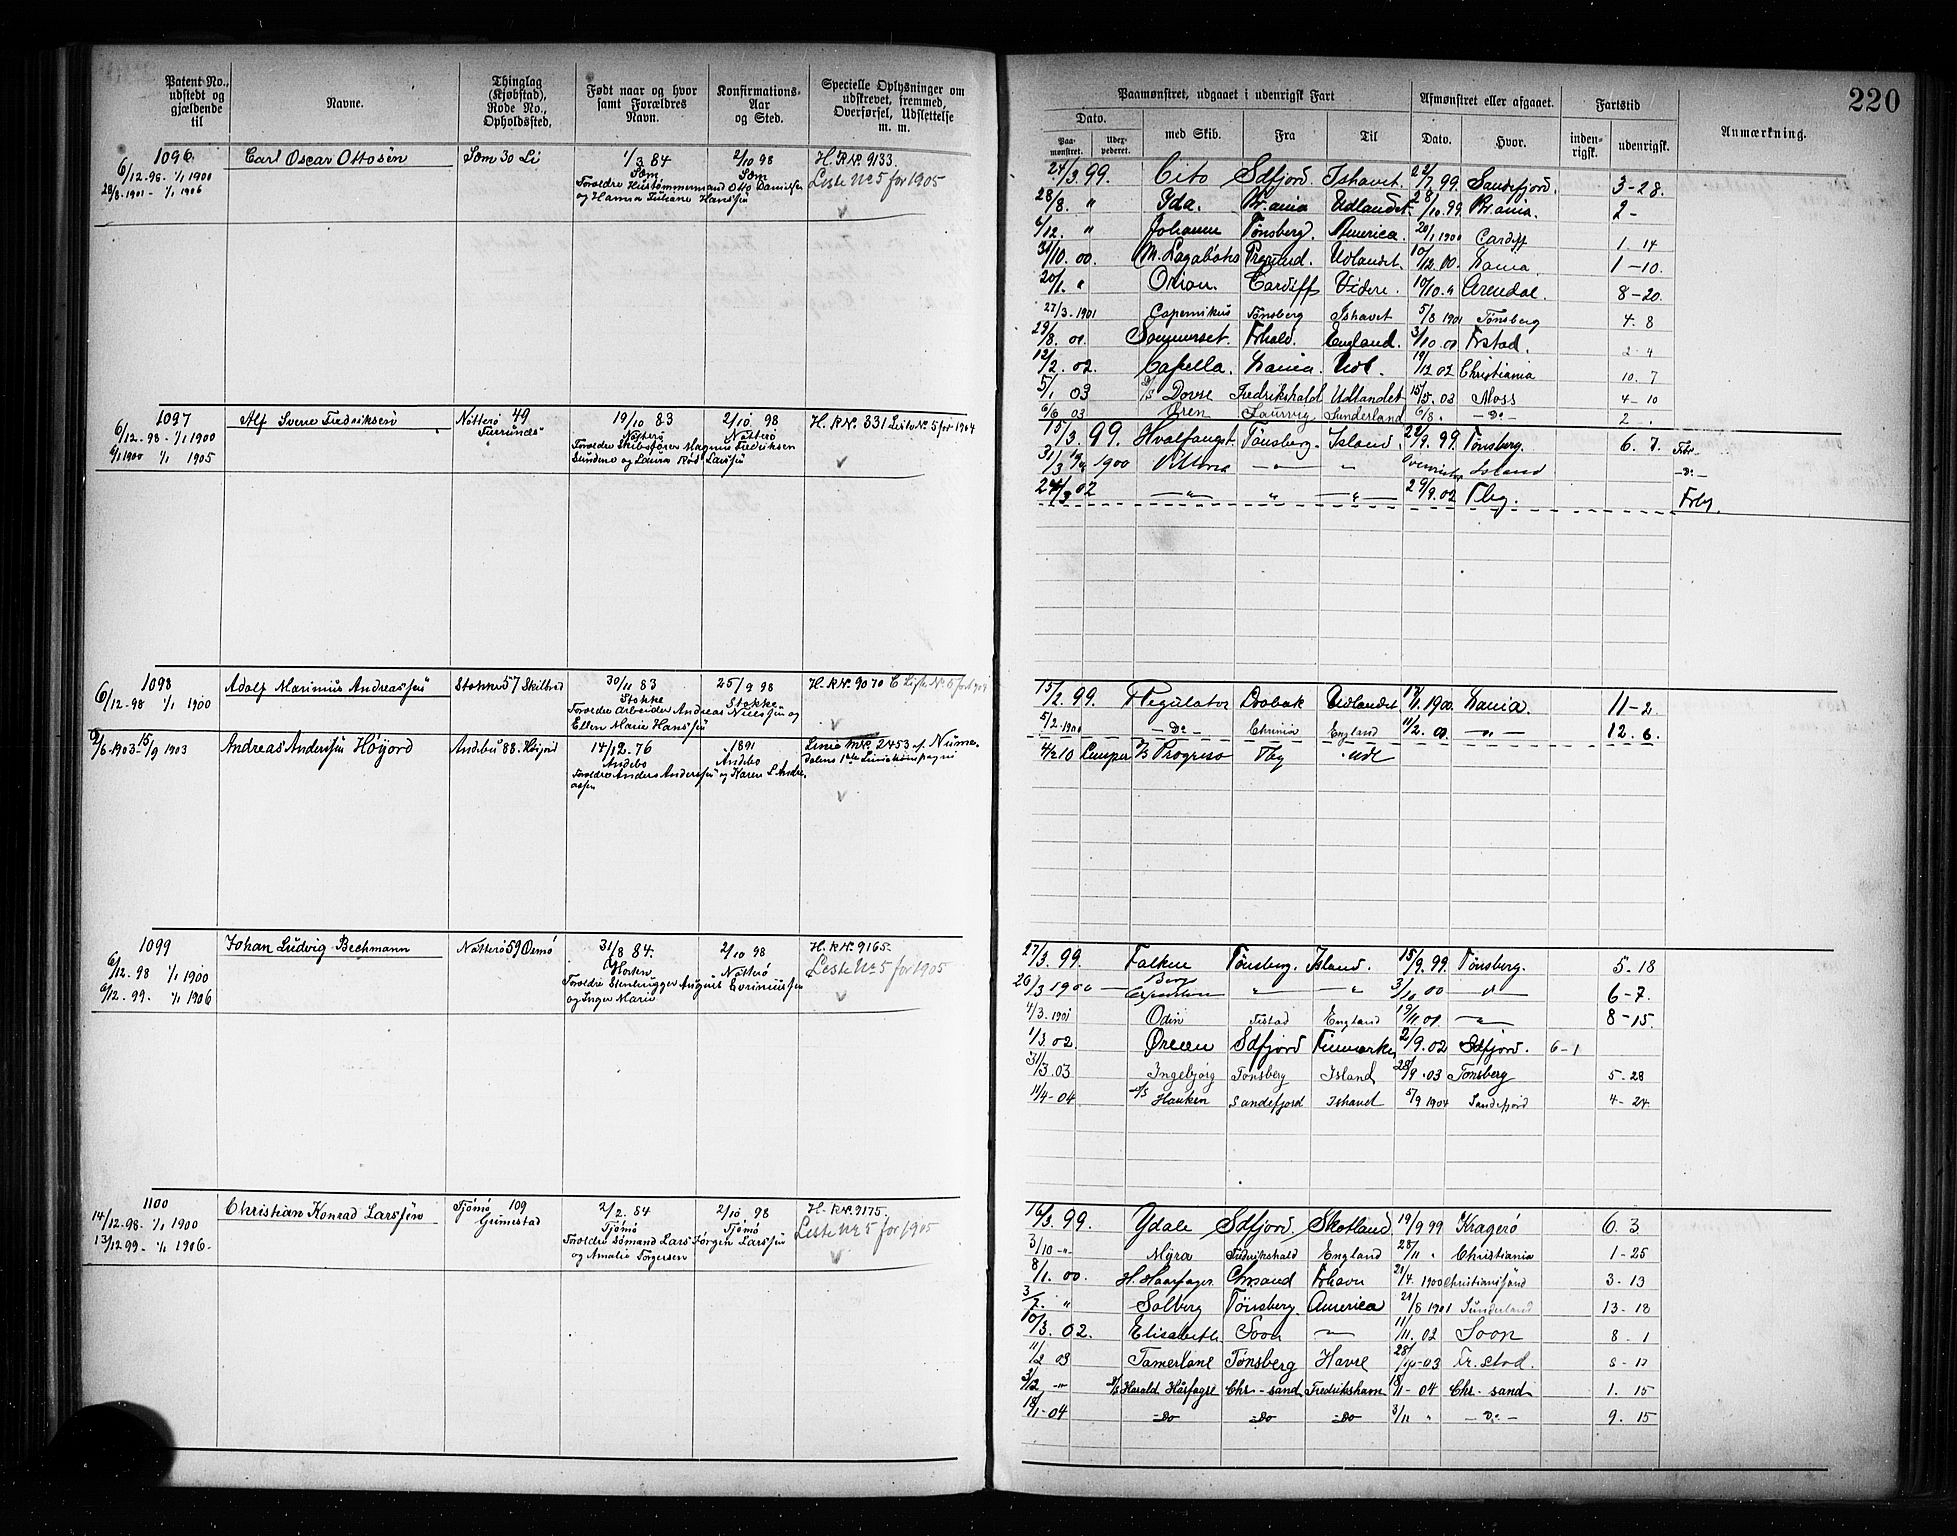 220
Patent No., udstedt og gjældende til
Navne.
Thinglag (Kjøbstad), Rode No., Opholdssted.
Født naar og hvor samt Forældres Navn.
Konfirmations-Aar og Sted.
Specielle Oplysninger om udskrevet, fremmed, Overførsel, Udslettelse m. m.
Paamønstret, udgaaet i udenrigsk Fart
Afmønstret eller afgaaet.
Fartstid
Anmærkning.
Dato.
Paamønstret.
med Skib.
Fra
Til
Dato.
Hvor.
indenrigsk.
udenrigsk.
1096
6/12.98. 1/1 1900
28/8.1901 - 1/1 1906
Carl Oscar Ottosen
Sem 30 Li
1/3 84
Sem
2/10 98
Sem
H.R.Nº. 9133.
Liste Nº 5 for 1905
Forældre Hustømmermand Otto Danielsen
og Hanna Juliane Hanssen
24/3.99. Cito Sdfjord. Ishavet. 22/7.99. Sandefjord. 3-28.
28/8. " Ida. Kr.ania Udlandet 28/10.99. Kr.ania. 2-
6/12. " Johanne Tønsberg. America. 20/1 1900 Cardiff 1-14
31/10.00. M. Lagabøte Udlandet. 10/12.00. 1-10.
20/1. " Orion. Cardiff Videre. 10/10." Arendal. 8-20.
27/3.1901 Copernikus Tønsberg Ishavet 5/8 1901 Tønsberg 4.8
29/8.01 Sommerset. Frhald. England. 3/10.01 Frstad. 2-4
12/2.02. Capella. Udl. 19/12 02 Christiania 10.7
5/1 03 Dovre Fredrikshald Udlandet 15/5.03 Moss 4-10
6/6 03 Ören Laurvig Sunderland 6/8. -Do- 2.
1097
6/12.98. 1/1 1900
6/1 1900 1/1 1905
Alf Sverre Fredriksen
Nøtterø 49
19/10 83
Nøtterø
2/10 98
Nøtterø
H.R.Nº. 331 Liste Nº 5 for 1904
Forældre Skibsfører Magnus Fredriksen
Sundene og Laura Rød Larssen
15/3.99. Hvalfangst. Tønsberg. Island. 22/9.99. Tønsberg. 6.7.
1900 Viktoria - " - " Island
24/3 02 - " - " - " - 29/9.02 Tbg.
1098
6/12-98 1/1 1900
Adolf Marinius Andreassen
Stokke 57 Skilbred
30/11 83
Stokke
25/9 98
Stokke
H.R.Nº. 9070
Forældre Arbeider Andreas Nilssen og
Ellen Marie Hanssen
15/2.99. Regulator Drøbak Udlandet 1900. 11-2.
5/2.1900 -Do- Chrinia England 11/2.00. - " - 12.6.
6/6.1903 15/9 1903
Andreas Anderssen Höyord
Andebu 88. Höijord
14/12.76
Andebo
1891
Andebo
Linie Nr. 2453 af Nume-
dalens 1ste Liniekompagni
Forældre Anders Anderssen og Karen L Andre-
assen
4/2 10 D/S Progreso Tbg Udl
1099
6/12.98 1/1 1900
6/12.99. 1/1 1906
Johan Ludvig Bechmann
Nøtterø 59 Ørsnø
31/8 84.
Horten
2/10 98
Nøtterø
H.R.Nº. 9165.
Liste Nº 5 for 1905
Forældre Stenhugger August Severinussen
og Inger Marie
27/3.99. Falken Tønsberg. Island. 15/9.99. Tønsberg. 5-18
26/3 1900 - Berg Expedition - " - " 3/10 00 - " - 6-7.
4/3.1901 Odin Frstad England 19/11.01 - " - 8-15.
1/3.02 Ørnen Sdfjord Finmarken 2/9.02 Sdfjord. 6-1
31/3.03 Ingebjorg Tønsberg Island 28/9.03 Tønsberg 5-28
11/4-04 D/S Hauken Sandefjord Ishavet 5/9 1904 Sandefjord 4-24.
1100
14/12-98. 1/1 1900
13/12 99. 1/1 1906.
Christian Konrad Larssen
Tjømø 109
Grimestad
2/2.84
Tjømø
2/10 98
Tjømø
H.R.Nº. 9175.
Liste Nº 5 for 1905
Forældre Sømand Lars Jørgen Larssen
og Amalie Torgersen
16/3.99. Ydale Sdfjord. Skotland. 19/9 99 Kragerö 6.3
3/10 - " - Myra Fredrikshald England 28/11 " Christiania 1-25
8/1.00. H. Haarfager Chrsand Frhavn 21/4.1900 Christianssand 3-13
3/7. " Solberg Tönsberg. America 21/8 1901 Sunderland 13-18
10/3.02. Elisabeth. Soon - " - 11/11.02 Soon 8-1
11/2 03 Tamerlane Tønsberg Havre 28/10-03 Fr.stad.
3/12 - " - D/S Harald Hårfagre Chr.-sand Fredrikshavn 18/1-04 Chr-sand 1.15
18/1-04 =Do =Do =Do 3/11 " -Do- 9.15